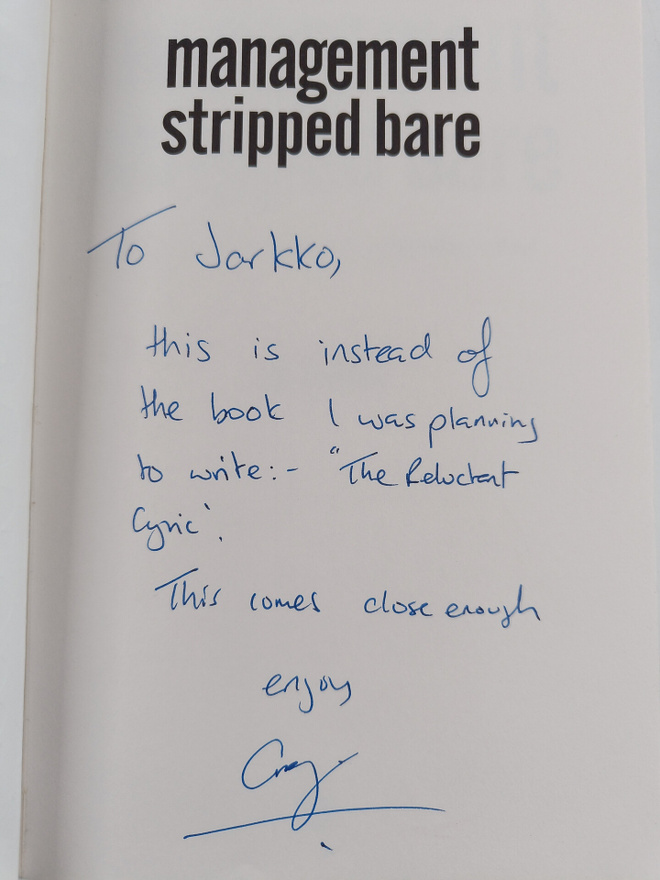 management
stripped bare
To Jarkko,
this is instead of
the book I was planning
to write:- "The Reluctant
Cynic".
This comes close enough
enjoy